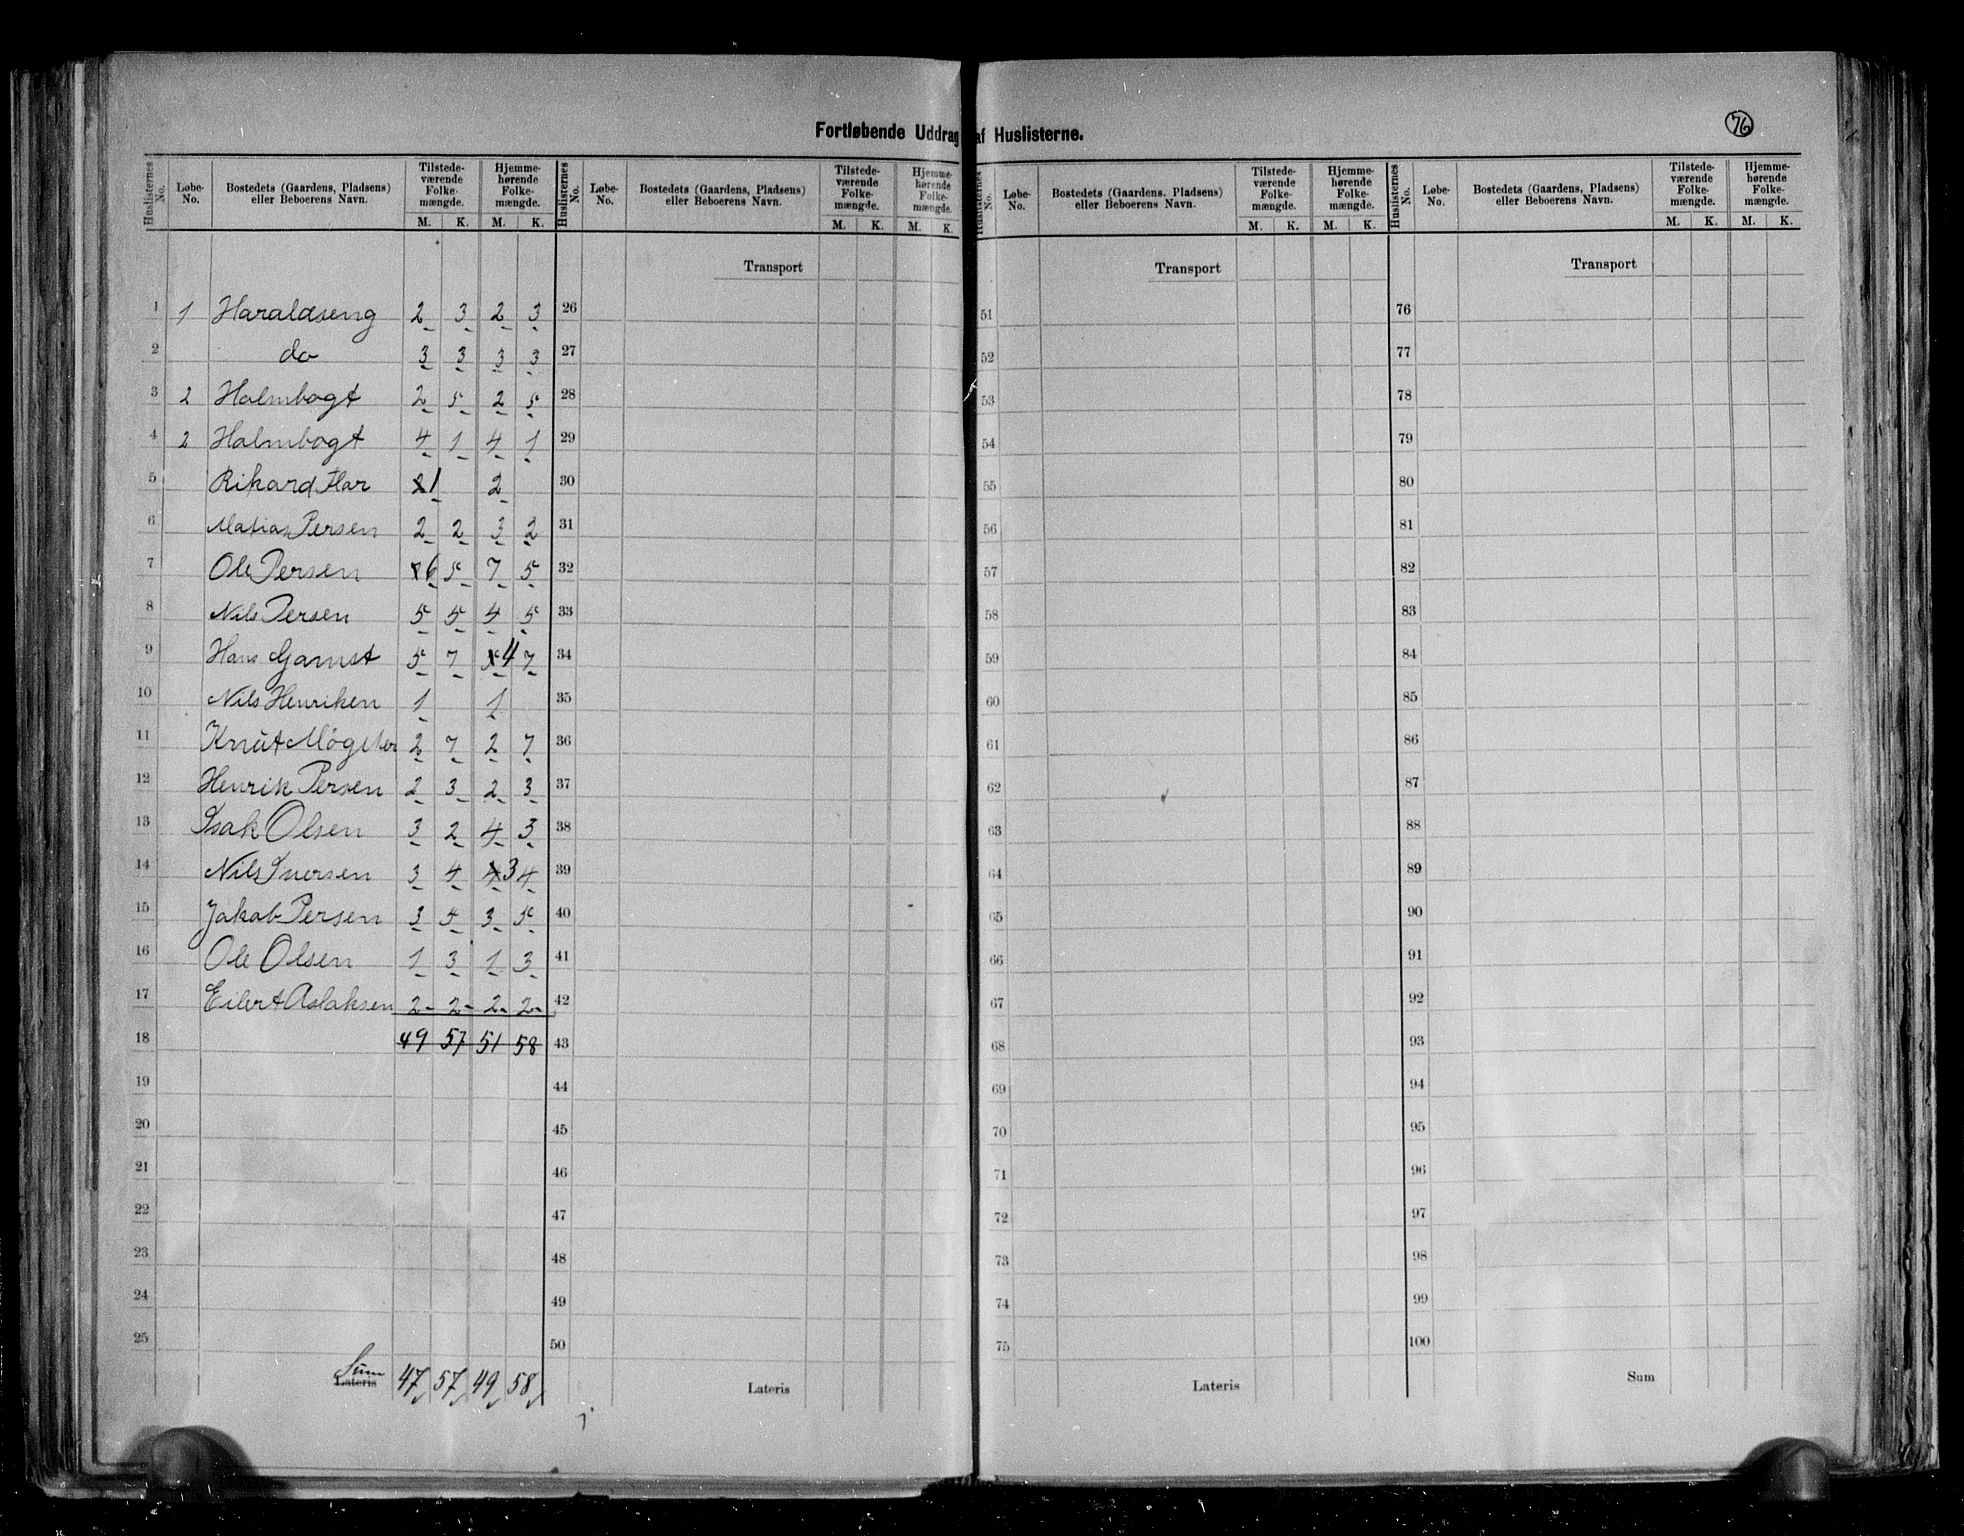 Fortløbende Uddrag af Huslisterne.
76
Huslisternes No. | Løbe-No. | Bostedets (Gaardens, Pladsens) eller Beboerens Navn. | Tilstedeværende Folkemængde. M. K. | Hjemmehørende Folkemængde. M. K.
1 1 Haraldseng 2 3 2 3
2 do 3 3 3 3
3 2 Holmbogt 2 5 2 5
4 2 Holmbogt 4 1 4 1
5 Rikard Har 2 1 2
6 Matias Persen 2 2 3 2
7 Ole Persen 6 5 7 5
8 Nils Persen 5 5 4 5
9 Hans Gamst 5 7 5 4 7
10 Nils Henriken 1 1
11 Knut Møgster 2 7 2 7
12 Henrik Persen 2 3 2 3
13 Isak Olsen 3 2 4 3
14 Nils Iversen 3 4 4 3 4
15 Jakob Persen 3 5 3 5
16 Ole Olsen 1 3 1 3
17 Eilert Aslaksen 2 2 2 2
18 49 57 51 58
19
20
21
22
23
24
25
Sum
Lateris 47 57 49 58
Huslisternes No. | Løbe-No. | Bostedets (Gaardens, Pladsens) eller Beboerens Navn. | Tilstedeværende Folkemængde. M. K. | Hjemmehørende Folkemængde. M. K.
Transport
26
27
28
29
30
31
32
33
34
35
36
37
38
39
40
41
42
43
44
45
46
47
48
49
50
Lateris
Huslisternes No. | Løbe-No. | Bostedets (Gaardens, Pladsens) eller Beboerens Navn. | Tilstedeværende Folkemængde. M. K. | Hjemmehørende Folkemængde. M. K.
Transport
51
52
53
54
55
56
57
58
59
60
61
62
63
64
65
66
67
68
69
70
71
72
73
74
75
Lateris
Huslisternes No. | Løbe-No. | Bostedets (Gaardens, Pladsens) eller Beboerens Navn. | Tilstedeværende Folkemængde. M. K. | Hjemmehørende Folkemængde. M. K.
Transport
76
77
78
79
80
81
82
83
84
85
86
87
88
89
90
91
92
93
94
95
96
97
98
99
100
Sum